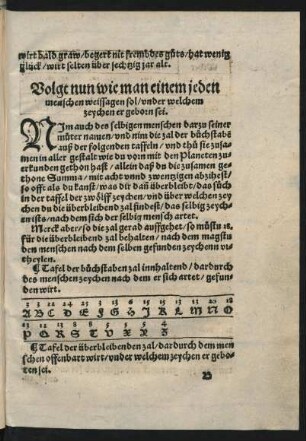 wirt bald graw / begert nit frembdes gůts / hat wenig
glück / wirt selten über sechtzig jar alt.
Volge nun wie man einem jeden
menschen weissagen sol / vnder welchem
zeychen er geborn sei.
NIm auch des selbigen menschen darzu seiner
můter namen / vnd nim die zal der bůchstabẽ
auß der folgenden tafflen / vnd thů sie zusa
men in aller gestalt wie du vorn mit den Planeten zu
erkunden gethon hast / allein daß du die zusamen ge
thone Summa / mit acht vnnd zwentzigen abziehest /
so offt als du kanst / was dir dañ überbleibt / das sůch
in der taffel der zwölff zeychen / vnd über welchen zey
chen du die überbleibend zal findest / das selbig zeych
en ists / nach dem sich der selbig mensch artet.
Merck aber / so die zal gerad auffgehet / so můstu 28.
für die überbleibend zal behalten / nach dem magstu
den menschen nach dem selben gefunden zeychenn vr
theylen.
¶ Tafel der bůchstaben zal innhaltend / dardurch
des menschen zeychen nach dem er sich artet / gefun
den wirt.
A B C D E F G H I K L M N O
P Q R S T V X Y Z
¶ Tafel der überbleibenden zal / dardurch dem men
schen offenbart wirt / vnder welchem zeychen er gebo
ren sei.
B